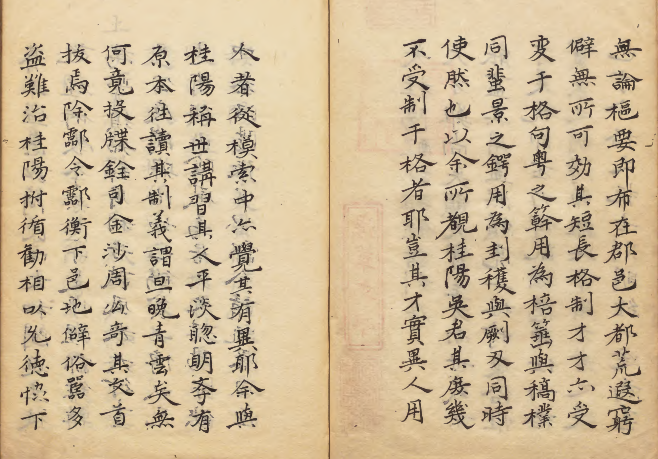 無論樞要即布在郡邑大都荒遐窮
僻無所可効其短長格制才才亦受
变于格句粤之簳用為棓箠與槁樸
同蜚景之鍔用為刲穫與劂刄同時
使然也以余所觀桂陽吳君其庶幾
不受制于格者耶豈其才實異人用
人者從模索中亦覺其有異耶余與
桂陽稱世講習其人平淡聰朗夲有
原本往讀其制義謂旦晚青雲矣無
何竟投牒銓司金沙周公奇其文首
拔焉除酃令酃衡下邑地僻俗囂多
盗難治桂陽拊循勸相以先徳慗下